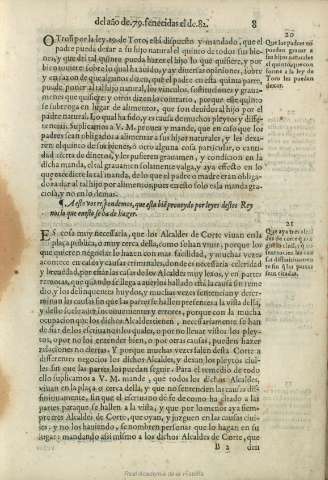 del año de .79. fenecidas el de 82. 8
OTrosi por la ley .10. de Toro, està dispuesto y mandado, que el
padre pueda dexar a su hijo natural el quinto de todos sus bie-
nes, y que del tal quinto pueda hazer el hijo lo que quisiere, y por
q̃ ha avido, y ay diversas opiniones, sobre
en razon de que algunos dizen, que el padre en esta quinta parte,
puede poner al tal hijo natural, los vinculos, sostituciones y grava-
menes que quisiere, y otros dizen lo contrario, porque este quinto
se subroga en lugar de alimentos, que son devidos al hijo por el
padre natural. Lo qual ha sido, y es causa de muchos pleytos y dife-
rencias. Suplicamos a V. M. provea y mande, que en caso que los
padres sean obligados a alimentar a sus hijos naturales, y les dexa-
ren el quinto de sus bienes, ò otro alguna cosa particular, o canti-
dad cierta de dineros, y les pusieren gravamen, y condicion en la
dicha manda, el tal gravamen solamente valga, y aya efecto en lo
que excediere la tal manda, de lo que el padre o madre eran obliga-
dos a dar al tal hijo por alimentos, pues en esto solo es la manda gra-
ciosa, y no en lo demas.
¶ A esto vos respondemos, que està bië proveydo por leyes destos Rey
nos lo que en esto se ha de hazer.
ES cosa muy necessaria, que los Alcaldes de Corte vivan en la
plaça publica, o muy cerca della, como solian vivir, porque los
que quieren negociar lo hazen con mas facilidad, y muchas vezes
ocurren en casos y causas criminales, donde es necessaria celeridad
y brevedad, por estar las casas de los Alcaldes muy lexos, y en partes
remotas, que quando se llega a averlos hallado està la causa sin reme
dio, y los delinquentes huydos, y muchas vezes sentencian y deter-
minan las causas sin que las partes se hallen presentes a la vista dellas,
y desto suele aver inconvinientes y errores, porque con la mucha
ocupacion que los dichos Alcaldes tienen, necessariamente se han
de fiar de los escrivanos los quales, o por no llevar vistos los pley-
tos, o por no los entender bien, o por otras causas, pueden hazer
relaciones no ciertas: Y porque muchas vezes salen desta Corte a
differentes negocios los dichos Alcaldes, y dexan los pleytos civi-
les sin que las partes los puedan seguir. Para el remedio de todo
ello suplicamos a V. M. mande, que todos los dichos Alcaldes,
vivan en la plaça o cerca della, y que no sentencien las causas diffi-
nitivamente, sin que el escrivano dè fe de como ha citado a las
partes para que se hallen a la vista, y que por lo menos aya siem-
pre tres Alcaldes de Corte, que oyan, y juzguen en las causas civi-
les; y no los haviendo, se nombren personas que lo hagan en su
lugar: mandando assi mismo a los dichos Alcaldes de Corte, que
B 2 den
20
Que los padres no
puedan gravar a
sus hijos naturales
el quinto, que con
forme a la ley de
Toro les pueden
dexar.
21
Que aya tres alcal
des de corte
Real Academia de la Historia